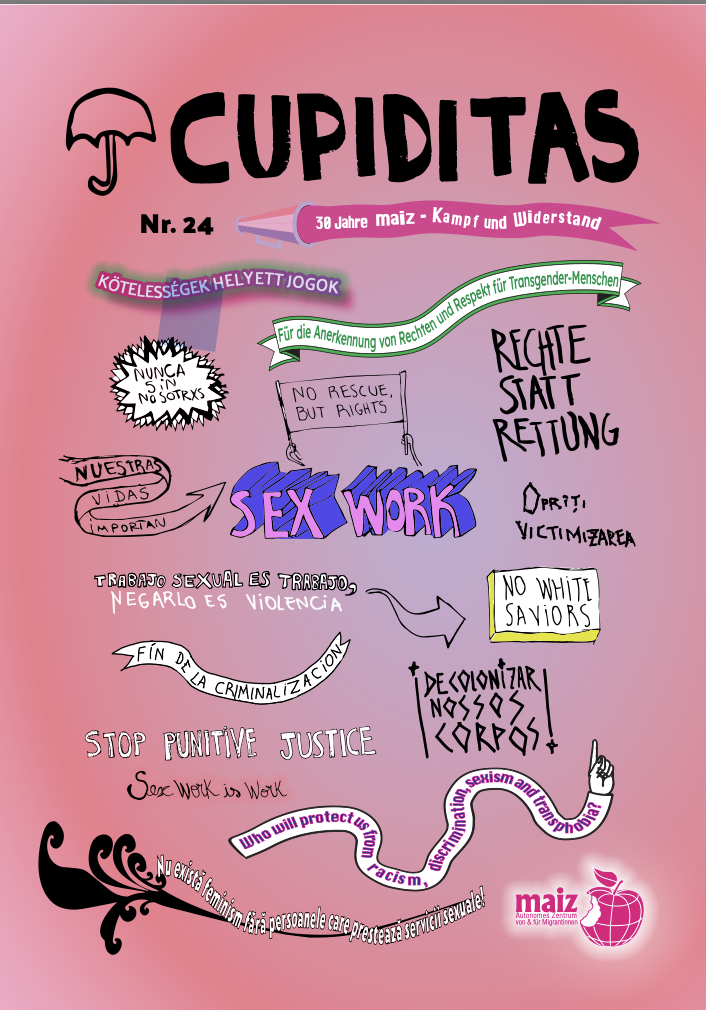 CUPIDITAS
Nr. 24
30 Jahre maiz - Kampf und Widerstand
KÖTELESSÉGEK HELYETT JOGOK
Für die Anerkennung von Rechten und Respekt für Transgender-Menschen
NUNCA
SiN
NOSOTRXS
NO RESCUE,
BUT RIGHTS
RECHTE
STATT
RETTUNG
NUESTRAS
VIDAS
iMPORTAN
SEX WORK
OPRIȚI
VICTIMIZAREA
TRABAJO SEXUAL ES TRABAJO,
NEGARLO ES VIOLENCIA
NO WHITE
SAVIORS
FÍN DE LA CRIMINALIZACIÓN
¡DECOLONIZAR
NOSSOS
CORPOS!
STOP PUNITIVE JUSTICE
Sex Work is Work
Who will protect us from racism, discrimination, sexism and transphobia?
Nu există feminism fără persoanele care prestează servicii sexuale!
maiz
Autonomes Zentrum
von & für Migrantinnen